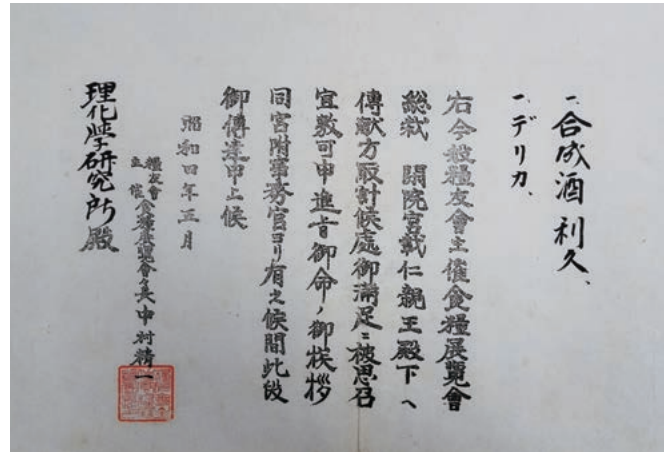 一、合成酒 利久、
一、デリカ、
右今般糧友會主催食糧展覽會
総裁 閑院宮載仁親王殿下へ
傳献方取計候處御満足ニ被思召
宜敷可申進旨御命ノ御挨拶
同宮附事務官ヨリ有之候間此段
御傳達申上候
昭和四年五月
糧友會主催食糧展覽會々長中村精一
理化学研究所殿